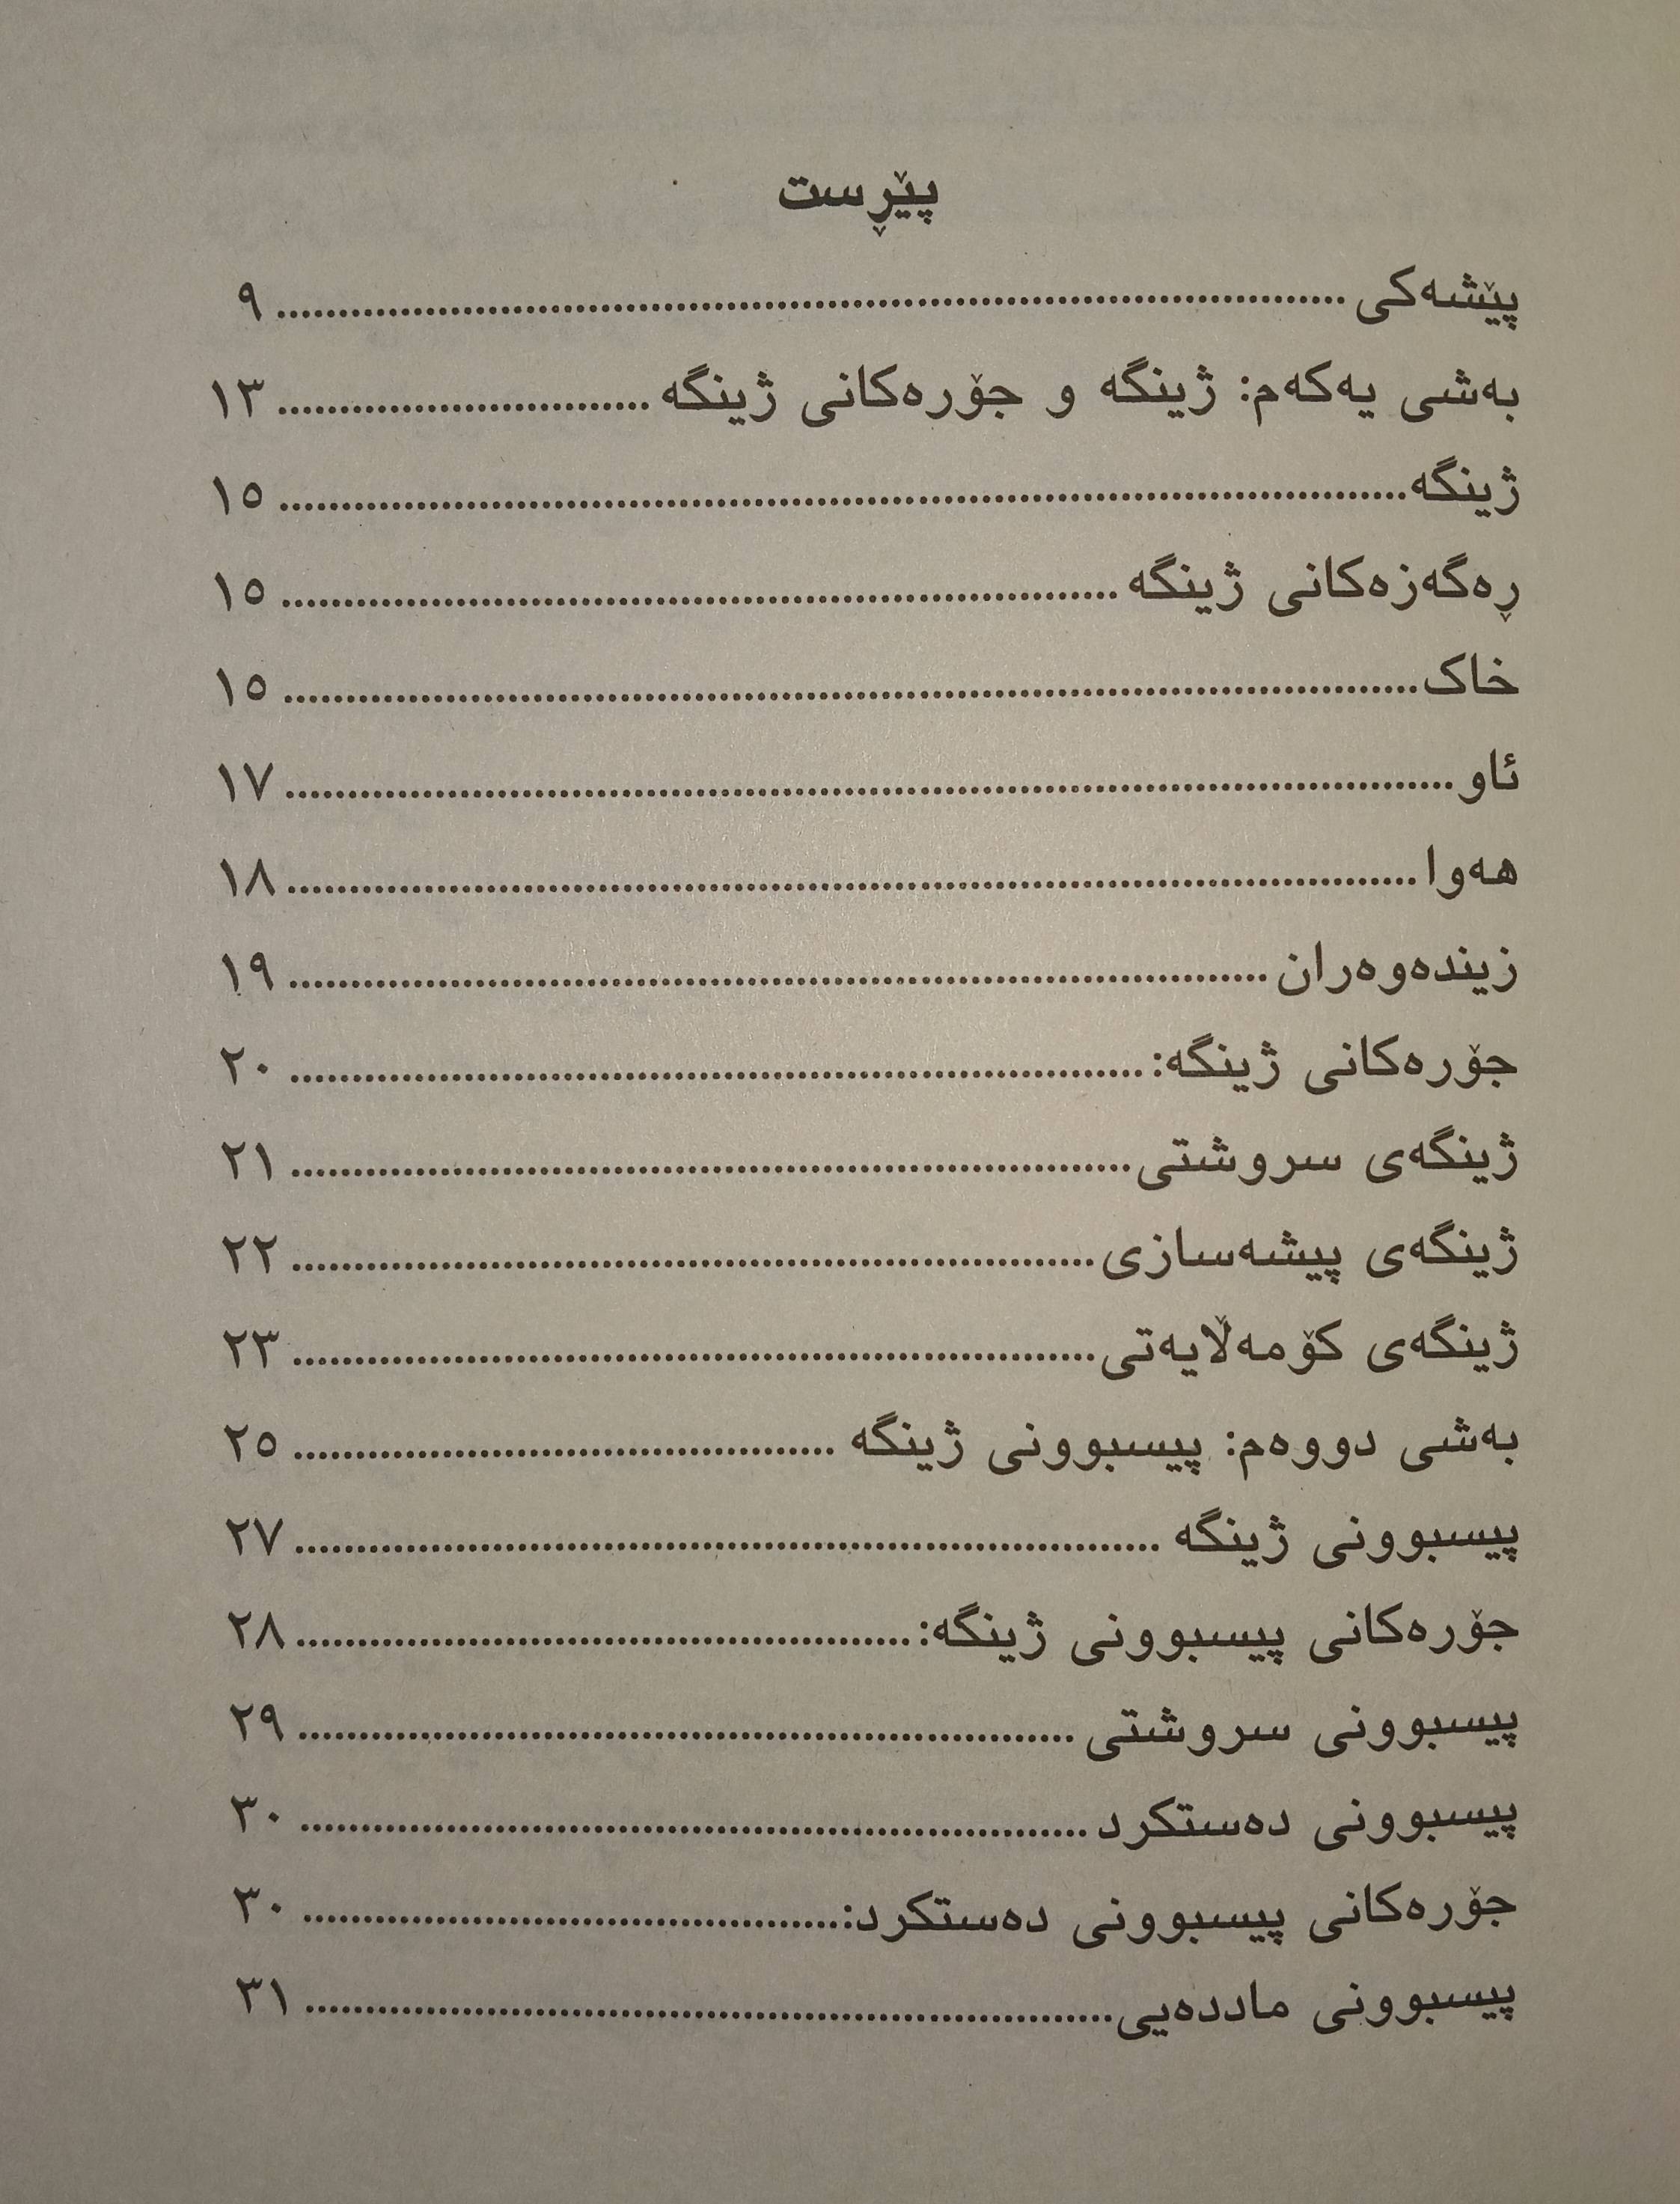 پێڕست
پێشەکی ................................ ٩
بەشی یەکەم: ژینگە و جۆرەکانی ژینگە ................................ ١٣
ژینگە ................................ ١٥
ڕەگەزەکانی ژینگە ................................ ١٥
خاک ................................ ١٥
ئاو ................................ ١٧
هەوا ................................ ١٨
زیندەوەران ................................ ١٩
جۆرەکانی ژینگە: ................................ ٢٠
ژینگەی سروشتی ................................ ٢١
ژینگەی پیشەسازی ................................ ٢٢
ژینگەی کۆمەڵایەتی ................................ ٢٣
بەشی دووەم: پیسبوونی ژینگە ................................ ٢٥
پیسبوونی ژینگە ................................ ٢٧
جۆرەکانی پیسبوونی ژینگە: ................................ ٢٨
پیسبوونی سروشتی ................................ ٢٩
پیسبوونی دەستکرد ................................ ٣٠
جۆرەکانی پیسبوونی دەستکرد: ................................ ٣٠
پیسبوونی ماددەیی ................................ ٣١